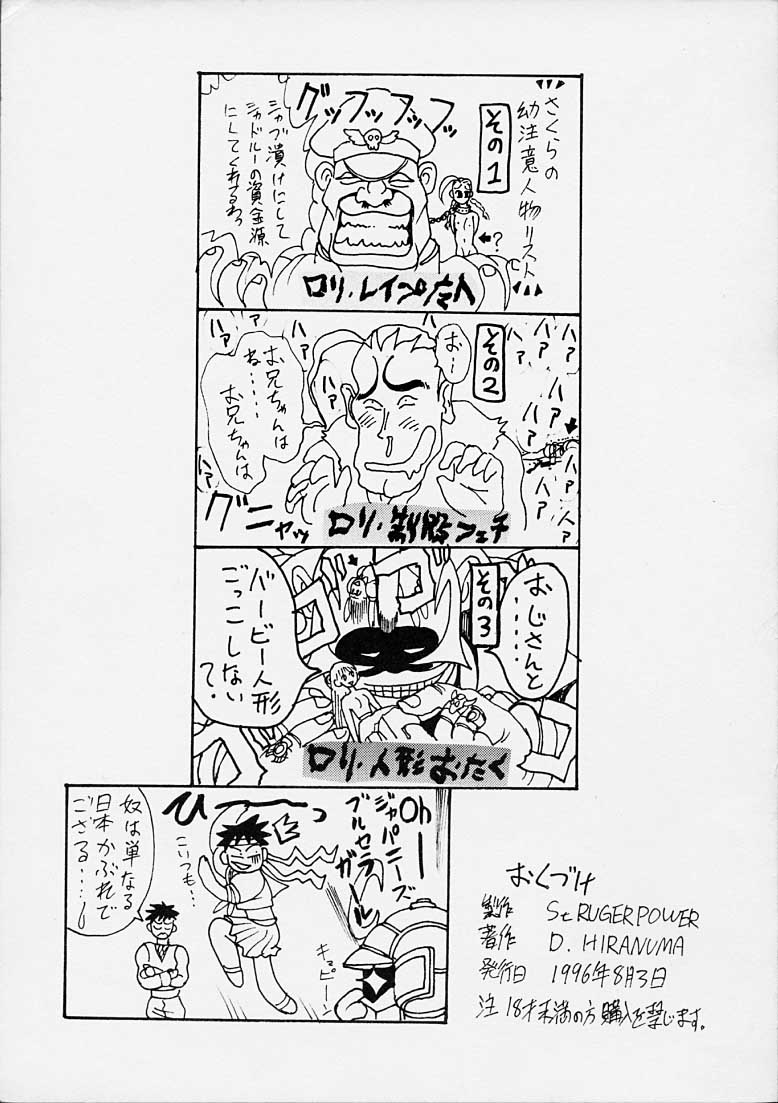 さくらの
幼注意人物リスト
その1
グッフッフッフッ
シャブ漬けにして
シャドルーの資金源
にしてくれるわっ
?
ロリ・レイプ魔人
その2
お〜
お兄ちゃんは
ね……
お兄ちゃんは
ハァ
ハァ
ハァ
ハァ
ハァ
ハァ
ハァ
ハァ
ハァ
グニャッ
ロリ・制服フェチ
その3
おじさんと
……
バービー人形
ごっこしない
?
ロリ・人形おたく
Oh
ー
ジャパニーズ
ブルセラ
ガ〜ル
ひーーっ
こいつも…
キュピーン
奴は単なる
日本かぶれで
ござる……
おくづけ
製作 St.RUGERPOWER
著作 D. HIRANUMA
発行日 1996年8月3日
注 18才未満の方購入を禁じます。